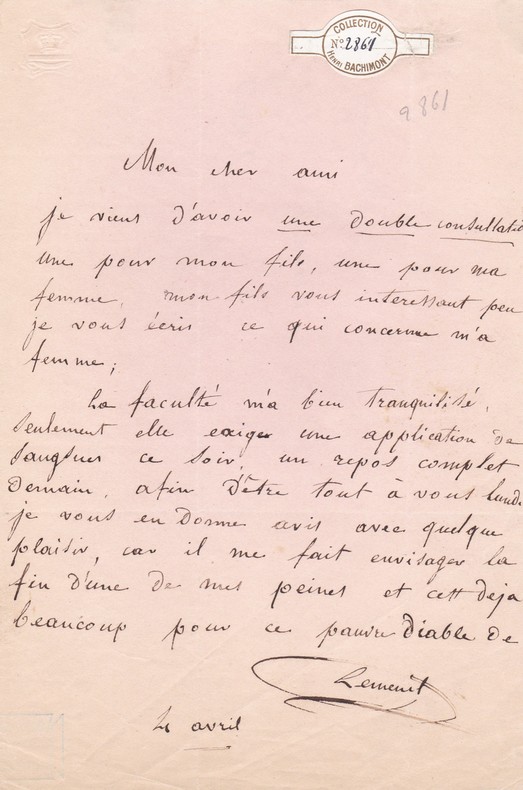 COLLECTION
Nº 2861
HENRI BACHIMONT
9861
Mon cher ami
je viens d'avoir une double consultatio
une pour mon fils, une pour ma
femme, mon fils vous interessant peu
je vous écris ce qui concerne m'a
femme;
La faculté m'a bien tranquilisé,
seulement elle exige une application de
sangsues ce soir, un repos complet
demain, afin d'être tout à vous lundi
je vous en donne avis avec quelque
plaisir, car il me fait envisager la
fin d'une de mes peines et cett deja
beaucoup pour ce pauvre diable de
avril